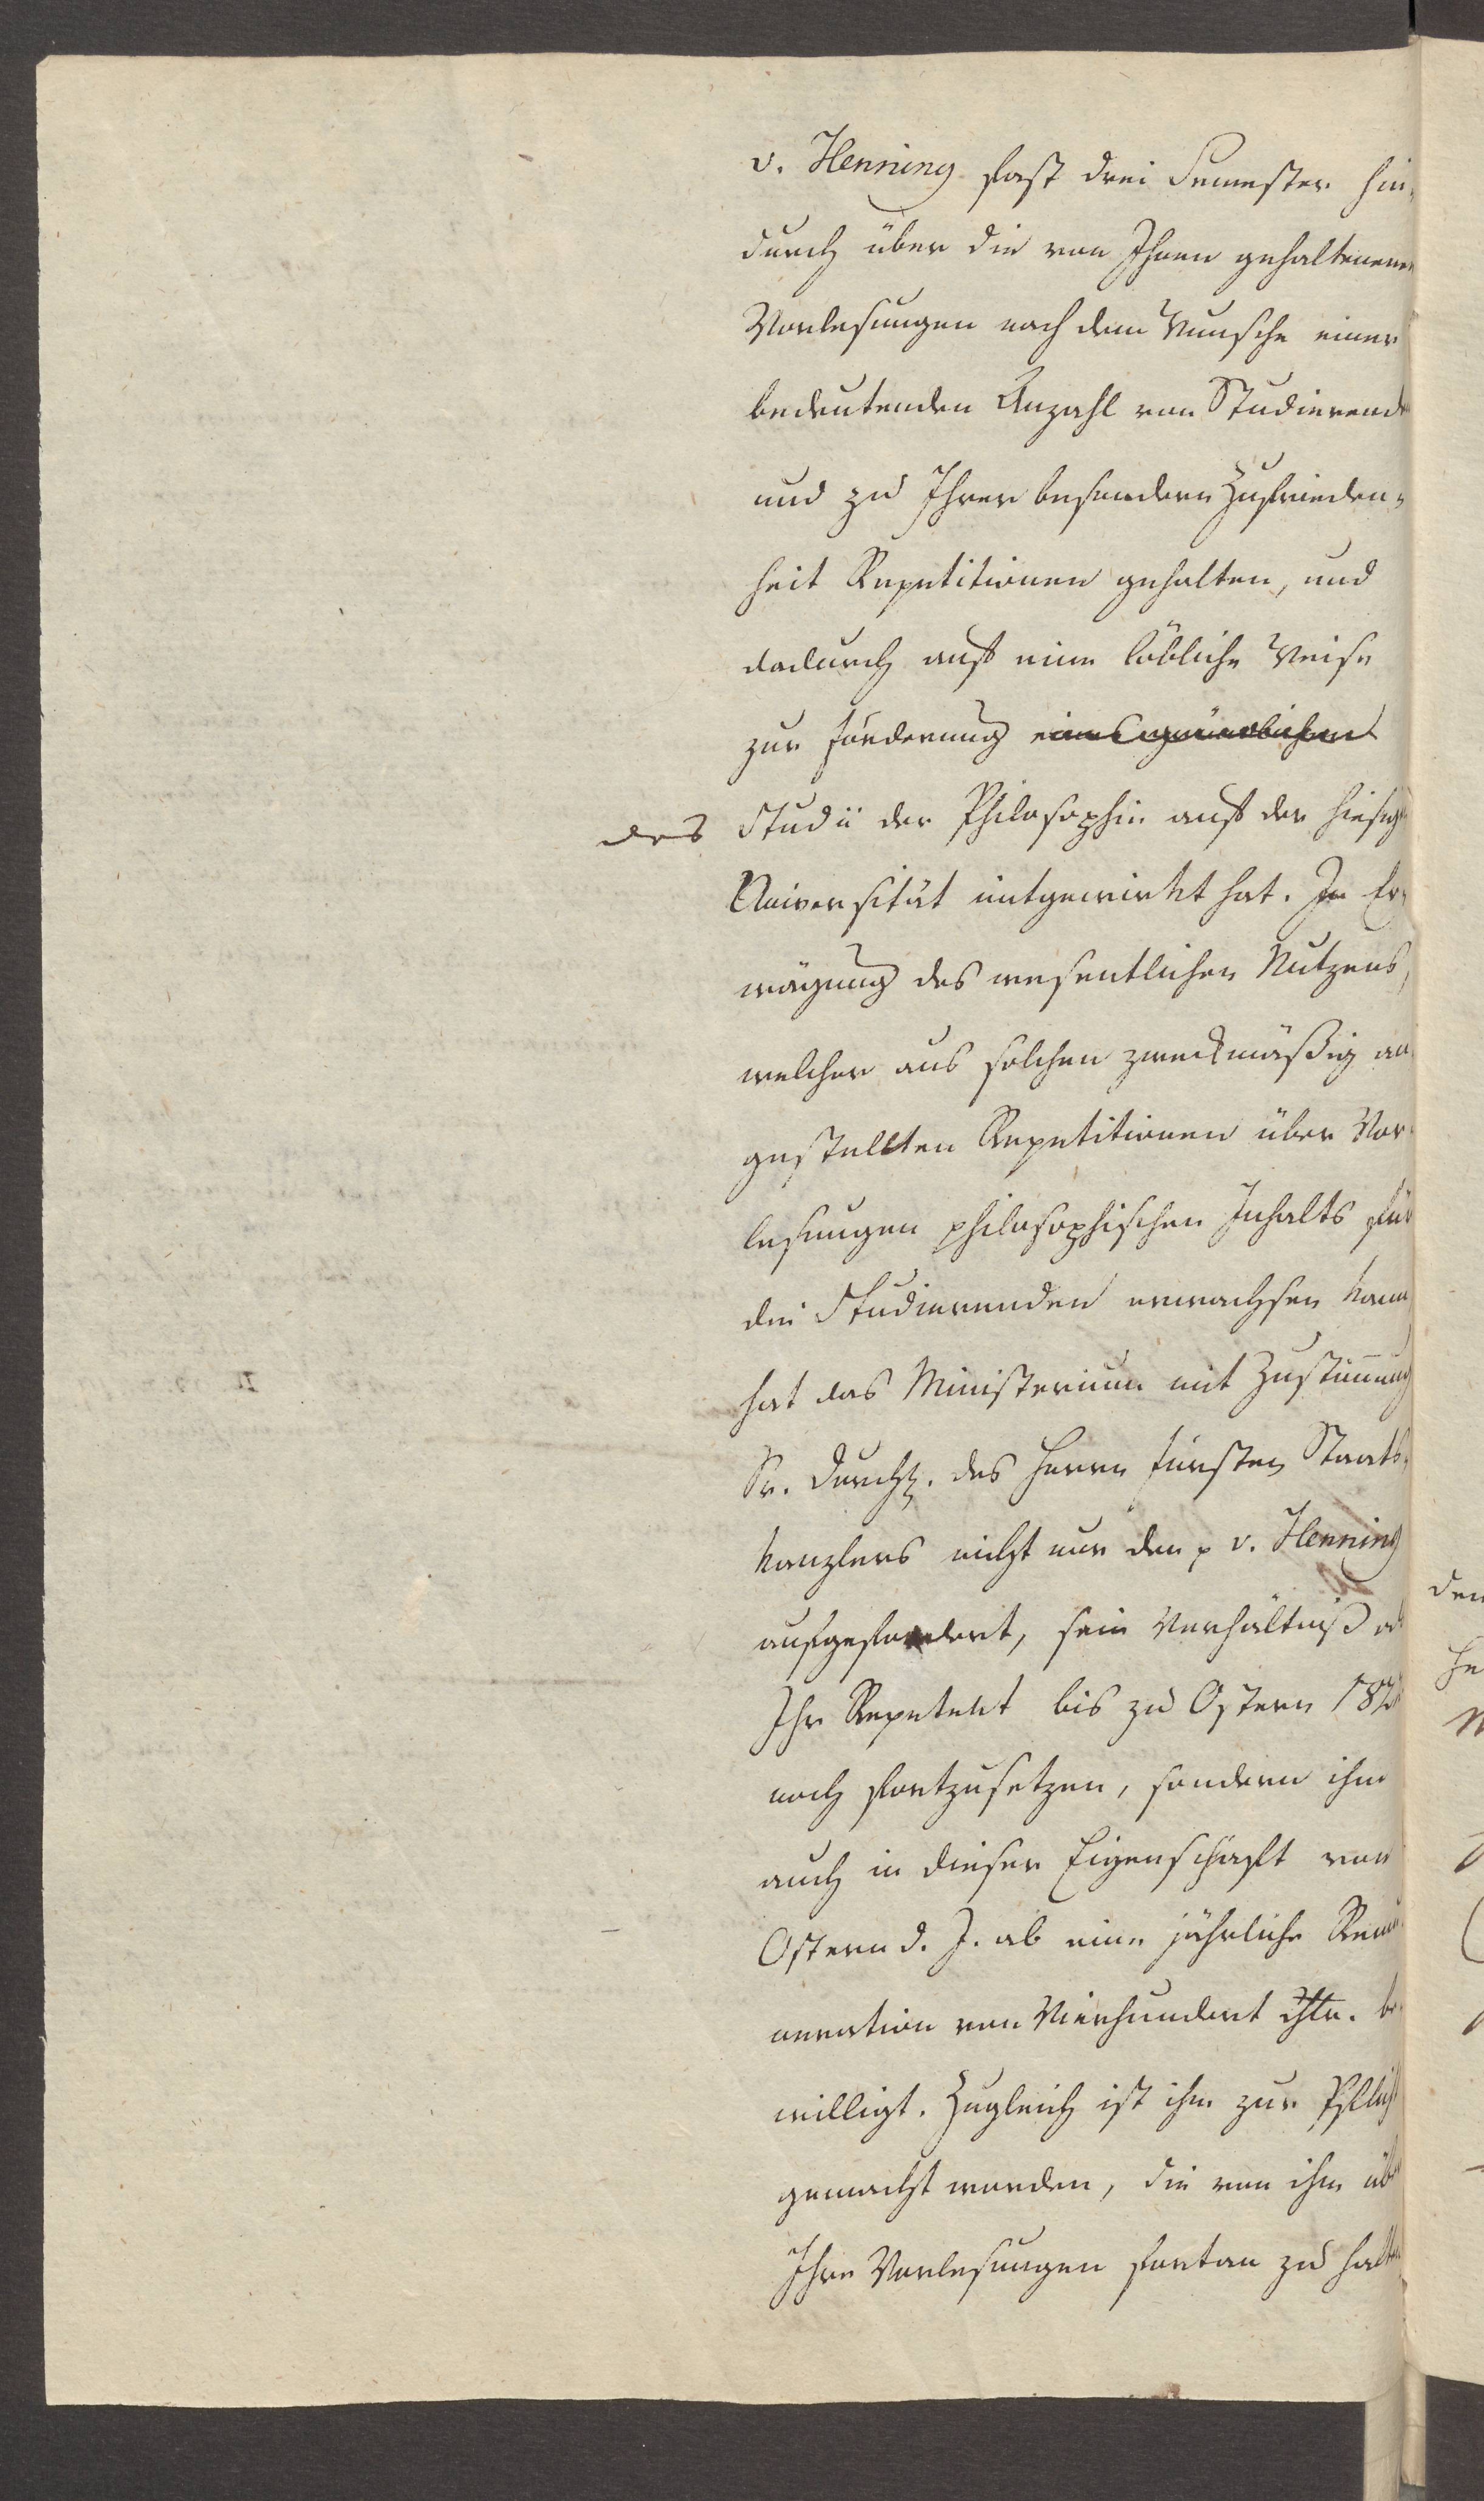 v. Henning fast drei Semester hin-
durch über die von Ihnen gehaltenen
Vorlesungen nach dem Wunsche einer
bedeutenden Anzahl von Studierende
und zu Ihrer besondern Zufrieden-
heit Repetitionen gehalten, und
dadurch auf eine löbliche Weise
zur Förderung eines gründlichen
des Studii der Philosophie auf der hiesig
Universität mitgewirkt hat. In Er-
wägung des wesentlichen Nutzens,
welcher aus solchen zweckmäßig an
gestellten Repetitionen über Vor-
lesungen philosophischen Inhalts für
die Studierenden erwachsen kann
hat das Ministerium mit Zustimmung
Sr. Durchl. des Herrn Fürsten Staats-
kanzlers nicht nur den p v. Henning
aufgefordert, sein Verhältniß als
Ihr Repetent bis zu Ostern 182
noch fortzusetzen, sondern ihm
auch in dieser Eigenschaft von
Ostern d. J. ab eine jährliche Remu-
neration von Vierhundert Rthlr. be-
willigt. Zugleich ist ihm zur Pflicht
gemacht worden, die von ihm über
Ihre Vorlesungen fortan zu halten